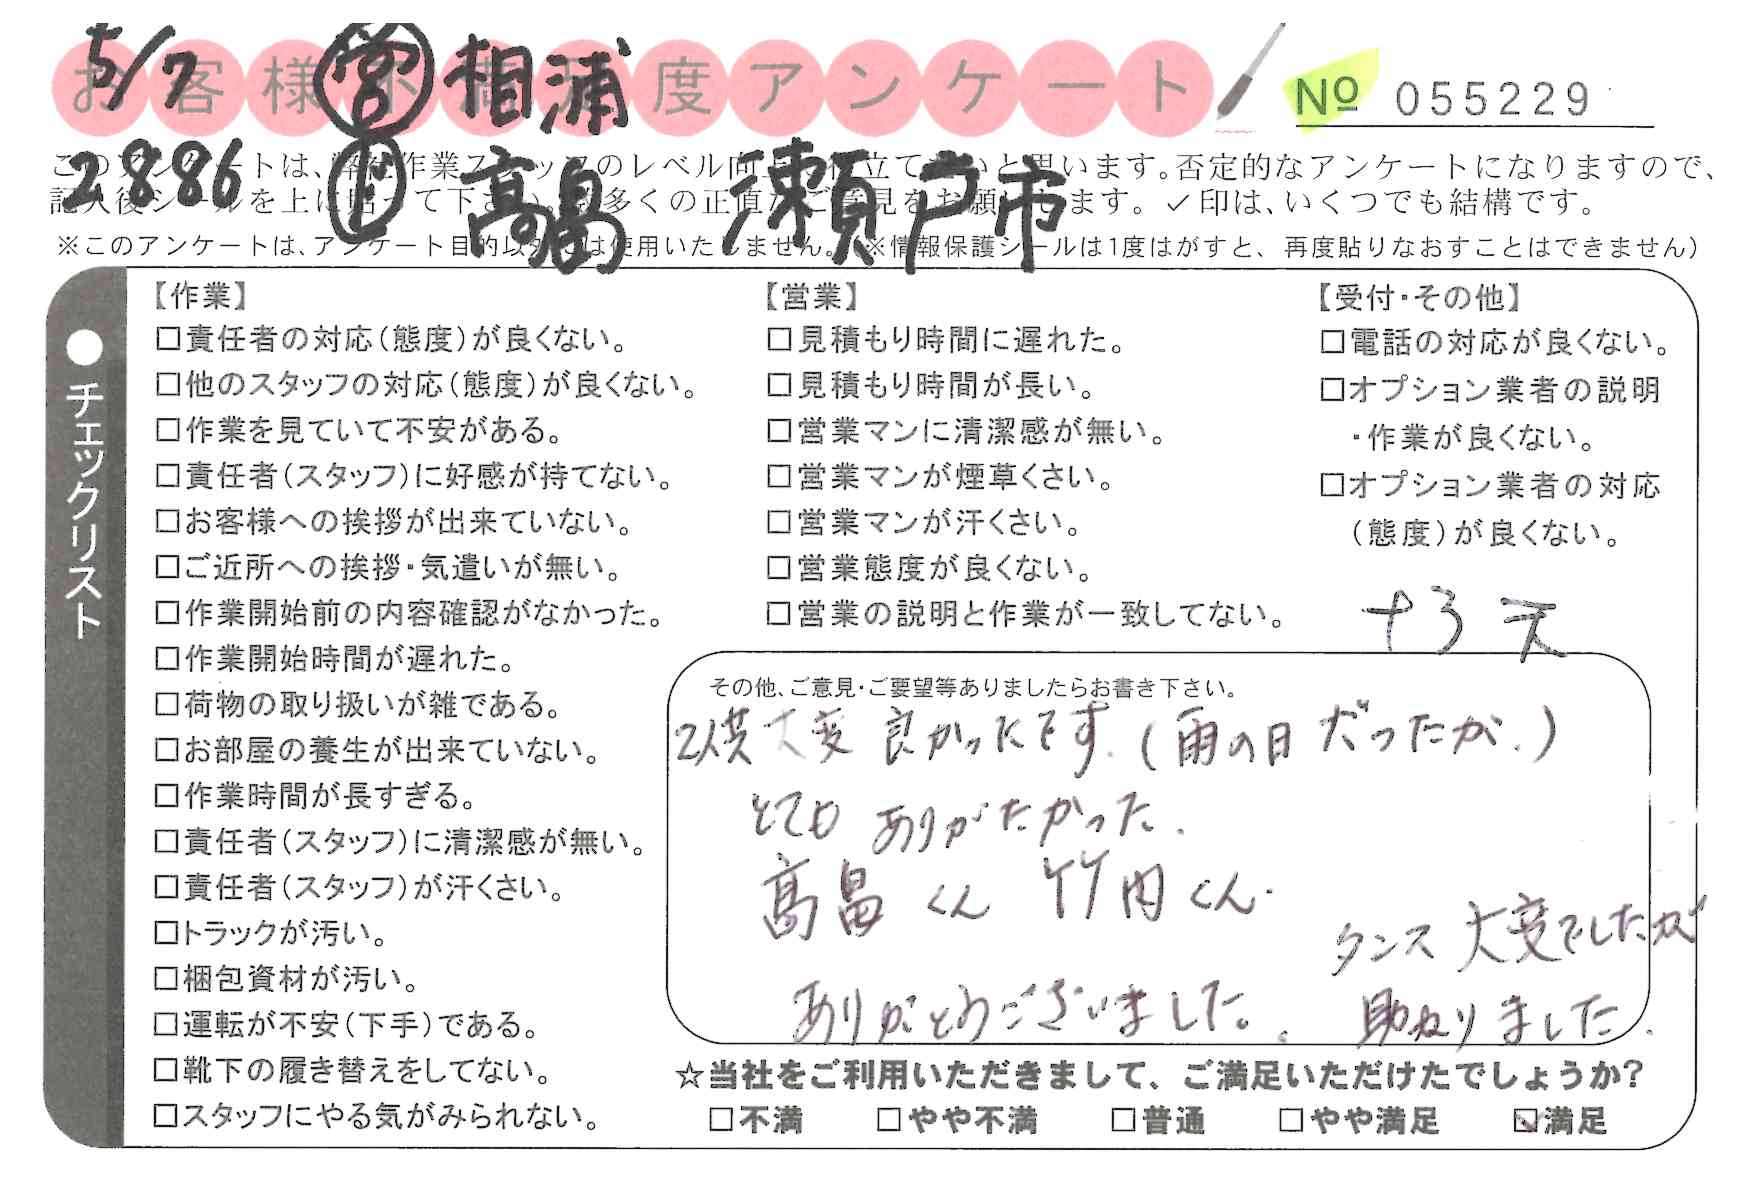 5/7 営 相浦
お客様不満足度アンケート
№ 055229
2886 高畠 瀬戸市
このアンケートは、弊社作業スタッフのレベル向上に役立てたいと思います。否定的なアンケートになりますので、
記入後シールを上に貼って下さい。数多くの正直なご意見をお願いします。✓印は、いくつでも結構です。
※このアンケートは、アンケート目的以外には使用いたしません。(※情報保護シールは1度はがすと、再度貼りなおすことはできません)
●チェックリスト
【作業】
□責任者の対応(態度)が良くない。
□他のスタッフの対応(態度)が良くない。
□作業を見ていて不安がある。
□責任者(スタッフ)に好感が持てない。
□お客様への挨拶が出来ていない。
□ご近所への挨拶・気遣いが無い。
□作業開始前の内容確認がなかった。
□作業開始時間が遅れた。
□荷物の取り扱いが雑である。
□お部屋の養生が出来ていない。
□作業時間が長すぎる。
□責任者(スタッフ)に清潔感が無い。
□責任者(スタッフ)が汗くさい。
□トラックが汚い。
□梱包資材が汚い。
□運転が不安(下手)である。
□靴下の履き替えをしてない。
□スタッフにやる気がみられない。
【営業】
□見積もり時間に遅れた。
□見積もり時間が長い。
□営業マンに清潔感が無い。
□営業マンが煙草くさい。
□営業マンが汗くさい。
□営業態度が良くない。
□営業の説明と作業が一致してない。
【受付・その他】
□電話の対応が良くない。
□オプション業者の説明
・作業が良くない。
□オプション業者の対応
(態度)が良くない。
その他、ご意見・ご要望等ありましたらお書き下さい。
2人共大変良かったです。(雨の日だったが.)
とても ありがたかった.
高畠くん 竹内くん.
タンス 大変でしたが
ありがとうございました。 助かりました.
☆当社をご利用いただきまして、ご満足いただけたでしょうか?
□不満 □やや不満 □普通 □やや満足 ☑満足